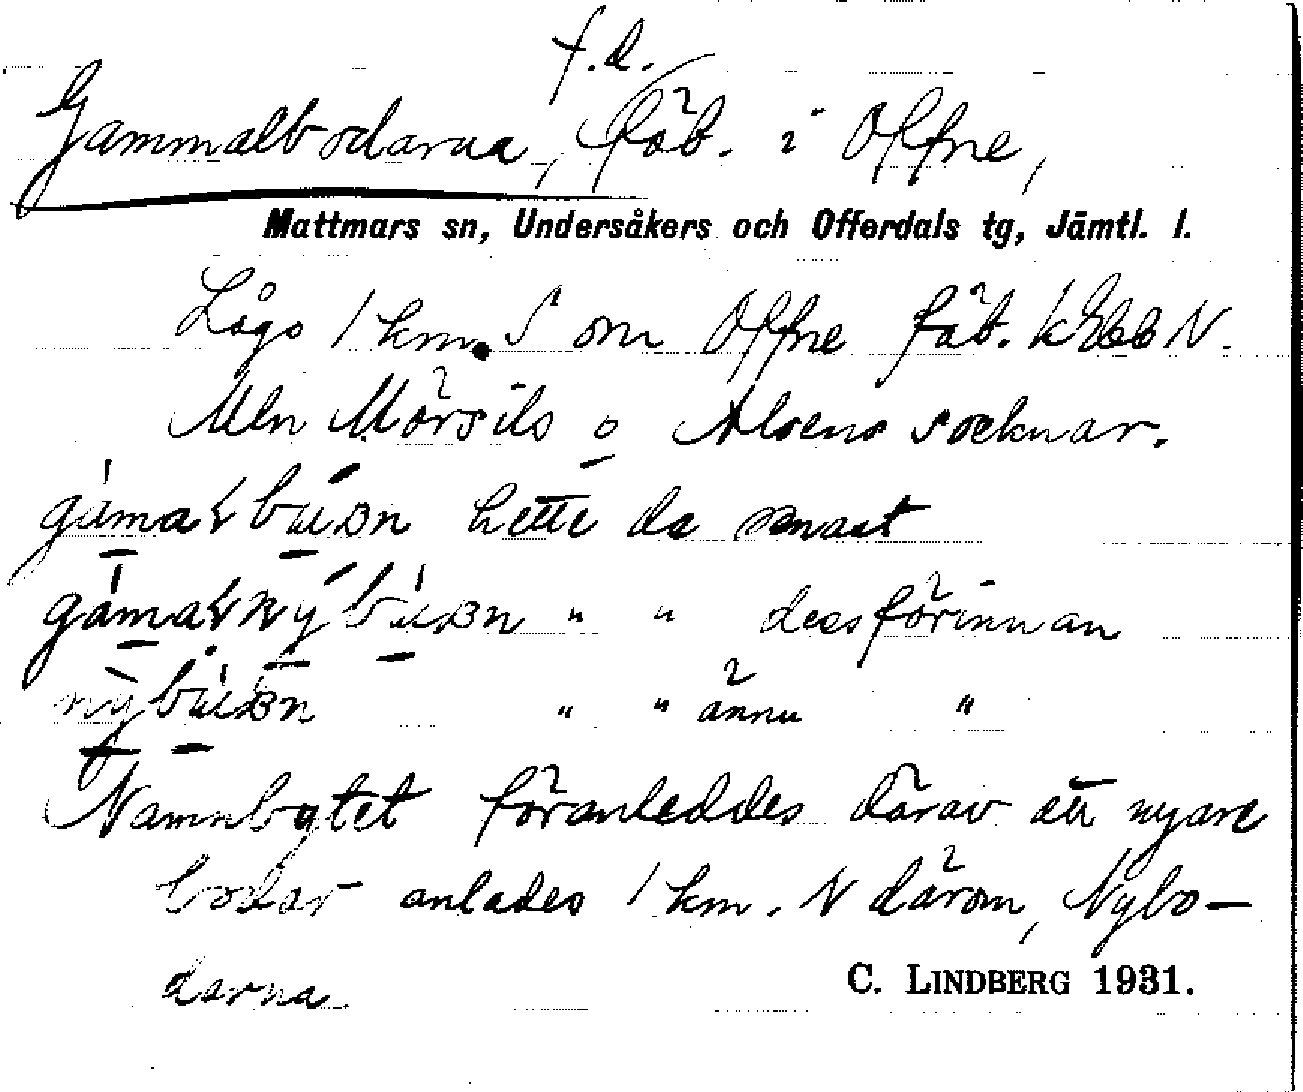 f.d.
Gammalbodarna, fäb. i Offne,
Mattmars sn, Undersåkers och Offerdals tg, Jämtl. l.
Lågo 1 km. S om Offne fäb. N.
Mln Mörsils o Alsens socknar.
hette de senast
" " dessförinnan
" " ännu "
Namnbytet föranleddes därav att nyare
bodar anlades 1 km. N därom, Nybo-
darna.
C. LINDBERG 1931.